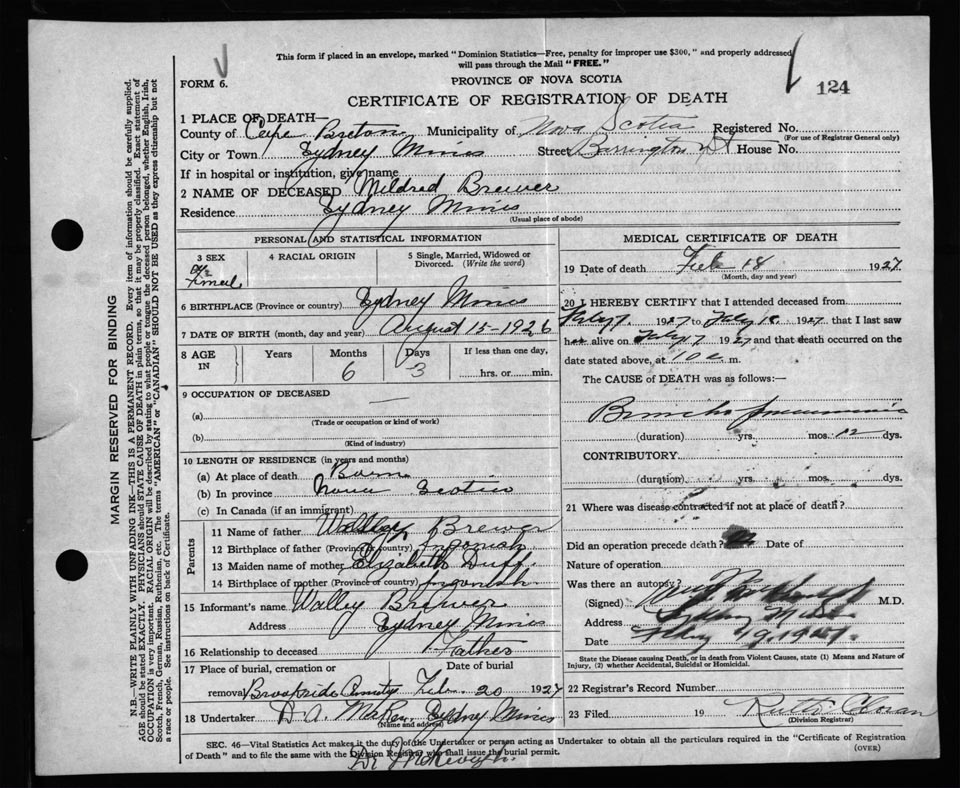 This form if placed in an envelope, marked "Dominion Statistics—Free, penalty for improper use $300," and properly addressed
will pass through the Mail "FREE."
FORM 6.
PROVINCE OF NOVA SCOTIA
124
CERTIFICATE OF REGISTRATION OF DEATH
1 PLACE OF DEATH—
County of Cape Breton Municipality of Nova Scotia Registered No.
(For use of Registrar General only)
City or Town Sydney Mines Street Barrington St House No.
If in hospital or institution, give name
2 NAME OF DECEASED Mildred Brewer
Residence Sydney Mines
(Usual place of abode)
PERSONAL AND STATISTICAL INFORMATION
3 SEX
4 RACIAL ORIGIN
5 Single, Married, Widowed or
Divorced. (Write the word)
6 BIRTHPLACE (Province or country) Sydney Mines
7 DATE OF BIRTH (month, day and year) August 15-1926
8 AGE IN
Years Months Days If less than one day,
6 3 hrs. or min.
9 OCCUPATION OF DECEASED —
(a)
(Trade or occupation or kind of work)
(b)
(Kind of industry)
10 LENGTH OF RESIDENCE (in years and months)
(a) At place of death Born
(b) In province Nova Scotia
(c) In Canada (if an immigrant)
Parents
11 Name of father Brewer
12 Birthplace of father (Province or country) Ingonish
13 Maiden name of mother Elizabeth Duff
14 Birthplace of mother (Province or country) Ingonish
15 Informant's name Walley Brewer
Address Sydney Mines
16 Relationship to deceased Father
17 Place of burial, cremation or
removal Brookside
Date of burial
Feb. 20 1927
18 Undertaker D. A. Sydney Mines
(Name and address)
MEDICAL CERTIFICATE OF DEATH
19 Date of death Feb 18 1927
(Month, day and year)
20 I HEREBY CERTIFY that I attended deceased from
1927 to 1927 that I last saw
h alive on 1927 and that death occurred on
date stated above, at 10 m.
The CAUSE of DEATH was as follows:—
Broncho pneumonia
(duration) yrs. mos. 12 dys.
CONTRIBUTORY.
(duration) yrs. mos. dys.
21 Where was disease contracted if not at place of death?
Did an operation precede death? Date of
Nature of operation
Was there an autopsy?
(Signed) M.D.
Address
Date
State the Disease causing Death, or in death from Violent Causes, state (1) Means and Nature of
Injury, (2) whether Accidental, Suicidal or Homicidal.
22 Registrar's Record Number
23 Filed 19
(Division Registrar)
SEC. 46—Vital Statistics Act makes it the duty of the Undertaker or person acting as Undertaker to obtain all the particulars required in the "Certificate of Registration
of Death" and to file the same with the Division Registrar who shall issue the burial permit.
(OVER)
MARGIN RESERVED FOR BINDING
N.B.—WRITE PLAINLY WITH UNFADING INK—THIS IS A PERMANENT RECORD. Every item of information should be carefully supplied.
AGE should be stated EXACTLY. PHYSICIANS should STATE CAUSE OF DEATH in plain terms, so that it may be properly classified. Exact statement of
OCCUPATION is very important. RACIAL ORIGIN will be described by stating to what people or tongue the deceased person belonged, whether English, Irish,
Scotch, French, German, Russian, Ruthenian, etc. The terms "AMERICAN" or "CANADIAN" SHOULD NOT BE USED as they express citizenship but not
a race or people. See instructions on back of Certificate.